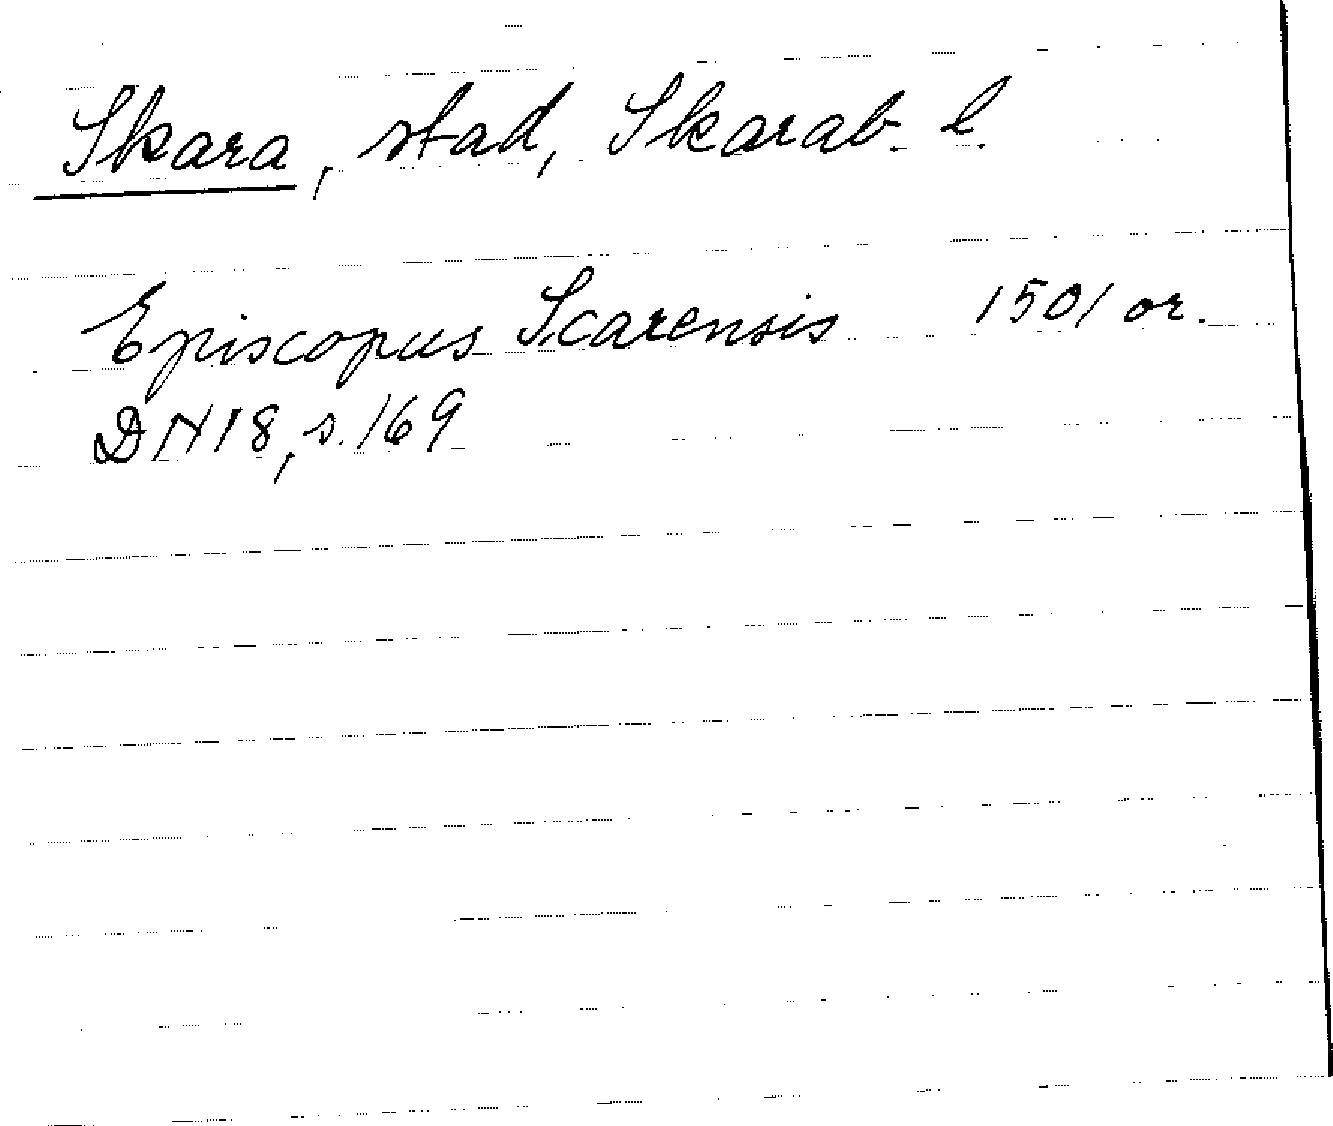 Skara, stad, Skarab. l.
Episcopus Scarensis 1501 or.
DN 18, s. 169